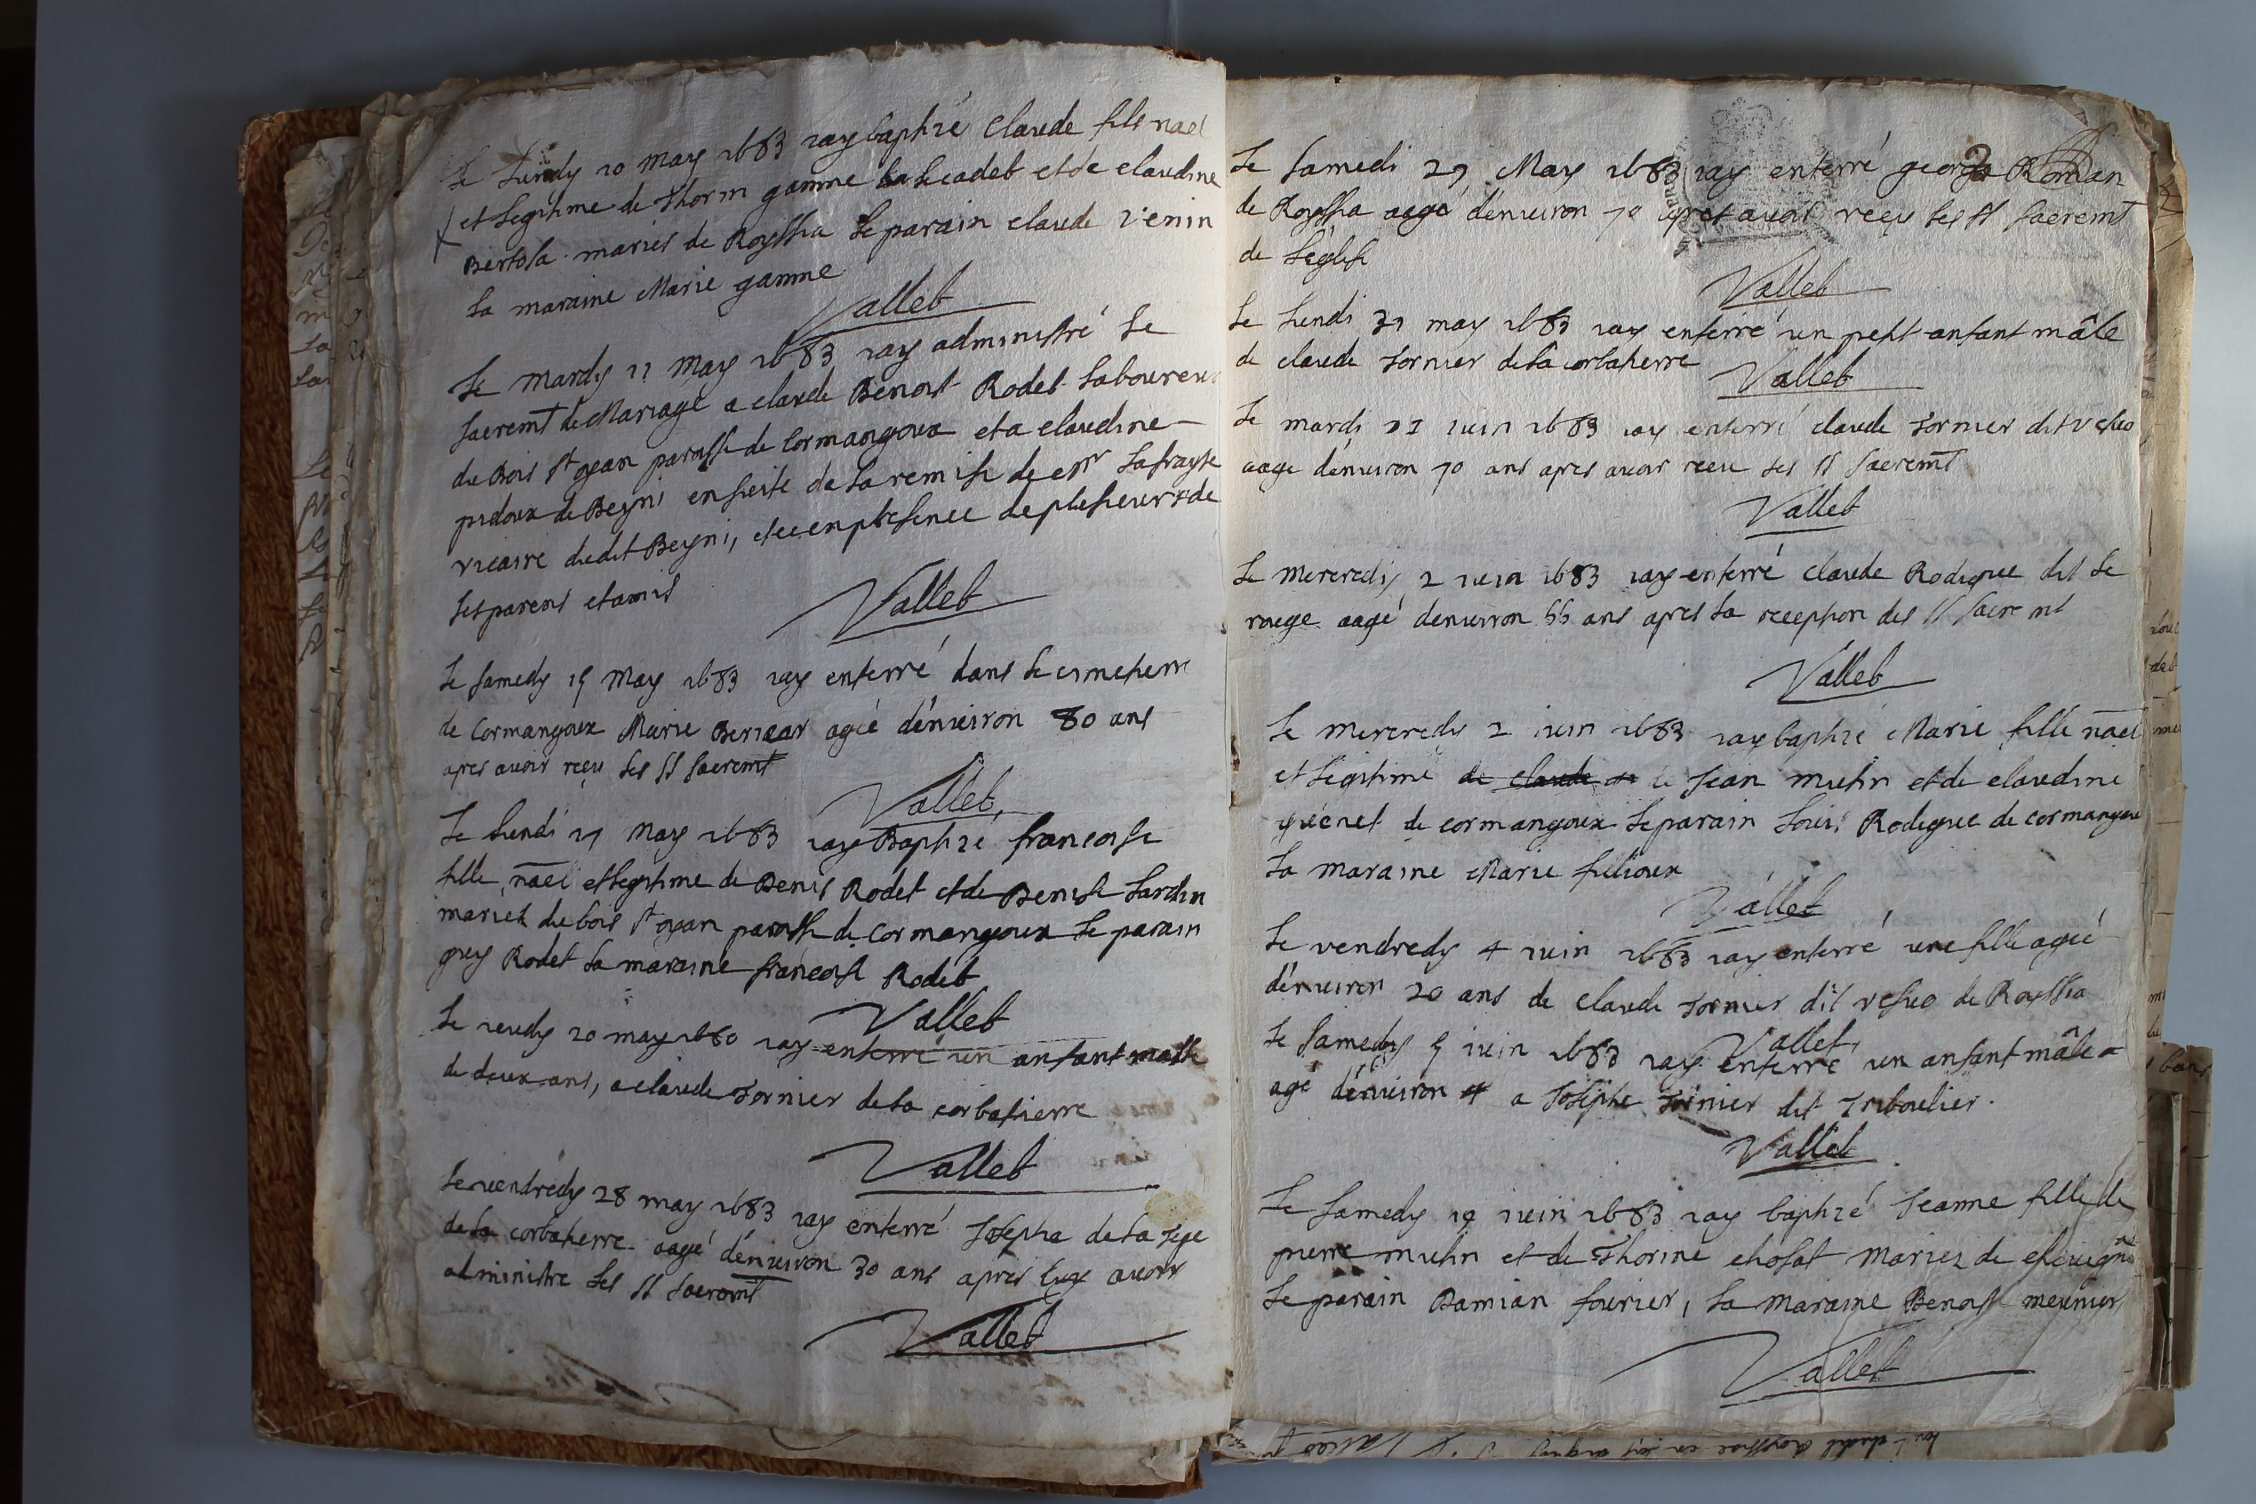 Le Lundy 10 May 1683 iay baptizé Claude fils nael
et Legitime de Thorin gamme Le cadet et de claudine
Bertola mariés de Royssia Le parain claude Venin
La maraine Marie gamme
Vallet
Le Mardy 11 May 1683 iay administré Le
sacremt de Mariage a claude Benoit Rodet Laboureur
du Bois st gean paroisse de Cormangoux et a claudine
pidoux de Beyni en suite de La remise de Mr Lafraysse
vicaire dudit Beyni, et ce en presence de plusieurs de
ses parens et amis
Vallet
Le samedy 15 May 1683 iay enterré dans Le cimetierre
de Cormangoux Marie agée dénuiron 80 ans
apres avoir reçu Les SS sacremt
Vallet
Le Lundi 17 May 1683 iay Baptizé francoise
fille nael et Legitime de Denis Rodet et de Denise Lardin
mariez du bois st gean paroisse de Cormangoux Le parain
guy Rodet La maraine francoise Rodet
Vallet
Le ieudy 20 may 1680 iay enterré un anfant masle
de deux ans, a claude Tornier de La corbatierre
Vallet
Le vendredy 28 may 1683 iay enterré Josepha de La
de La corbatierre aagé dénuiron 30 ans apres Luy avoir
administre Les SS sacremt
Vallet
Le samedi 29 May 1683 iay enterré george Roman
de Royssia aagé dénuiron 70 apres avoir reçu Les SS sacremt
de Léglise
Vallet
Le Lundi 31 may 1683 iay enterré un petit anfant mâle
de claude Tornier de La corbatierre
Vallet
Le mardi 1 iuin 1683 iay enterré claude Tornier dit
aage dénuiron 70 ans apres avoir receu Les SS sacremt
Vallet
Le mercredy 2 iuin 1683 iay enterré claude Rodigue dit Le
rouge aagé denuiron 66 ans apres La reception des SS sacremt
Vallet
Le mercredy 2 iuin 1683 iay baptizé Marie fille nael
et Legitime de claude de Jean mutin et de claudine
de cormangoux Le parain Louis Rodigue de cormangoux
La maraine Marie filioux
Vallet
Le vendredy 4 iuin 1683 iay enterré une fille agée
dénuiron 20 ans de claude Tornier dit de Royssia
Vallet
Le samedy 5 iuin 1683 iay enterré un anfant mâle
agé dénuiron 4 a Josephe Tornier dit Triboulier.
Vallet
Le samedy 19 iuin 1683 iay baptizé Jeanne fille de
pierre mutin et de Thorine chosat Mariez de
Le parain Damian fourier, La Maraine Benoiste meunier
Vallet